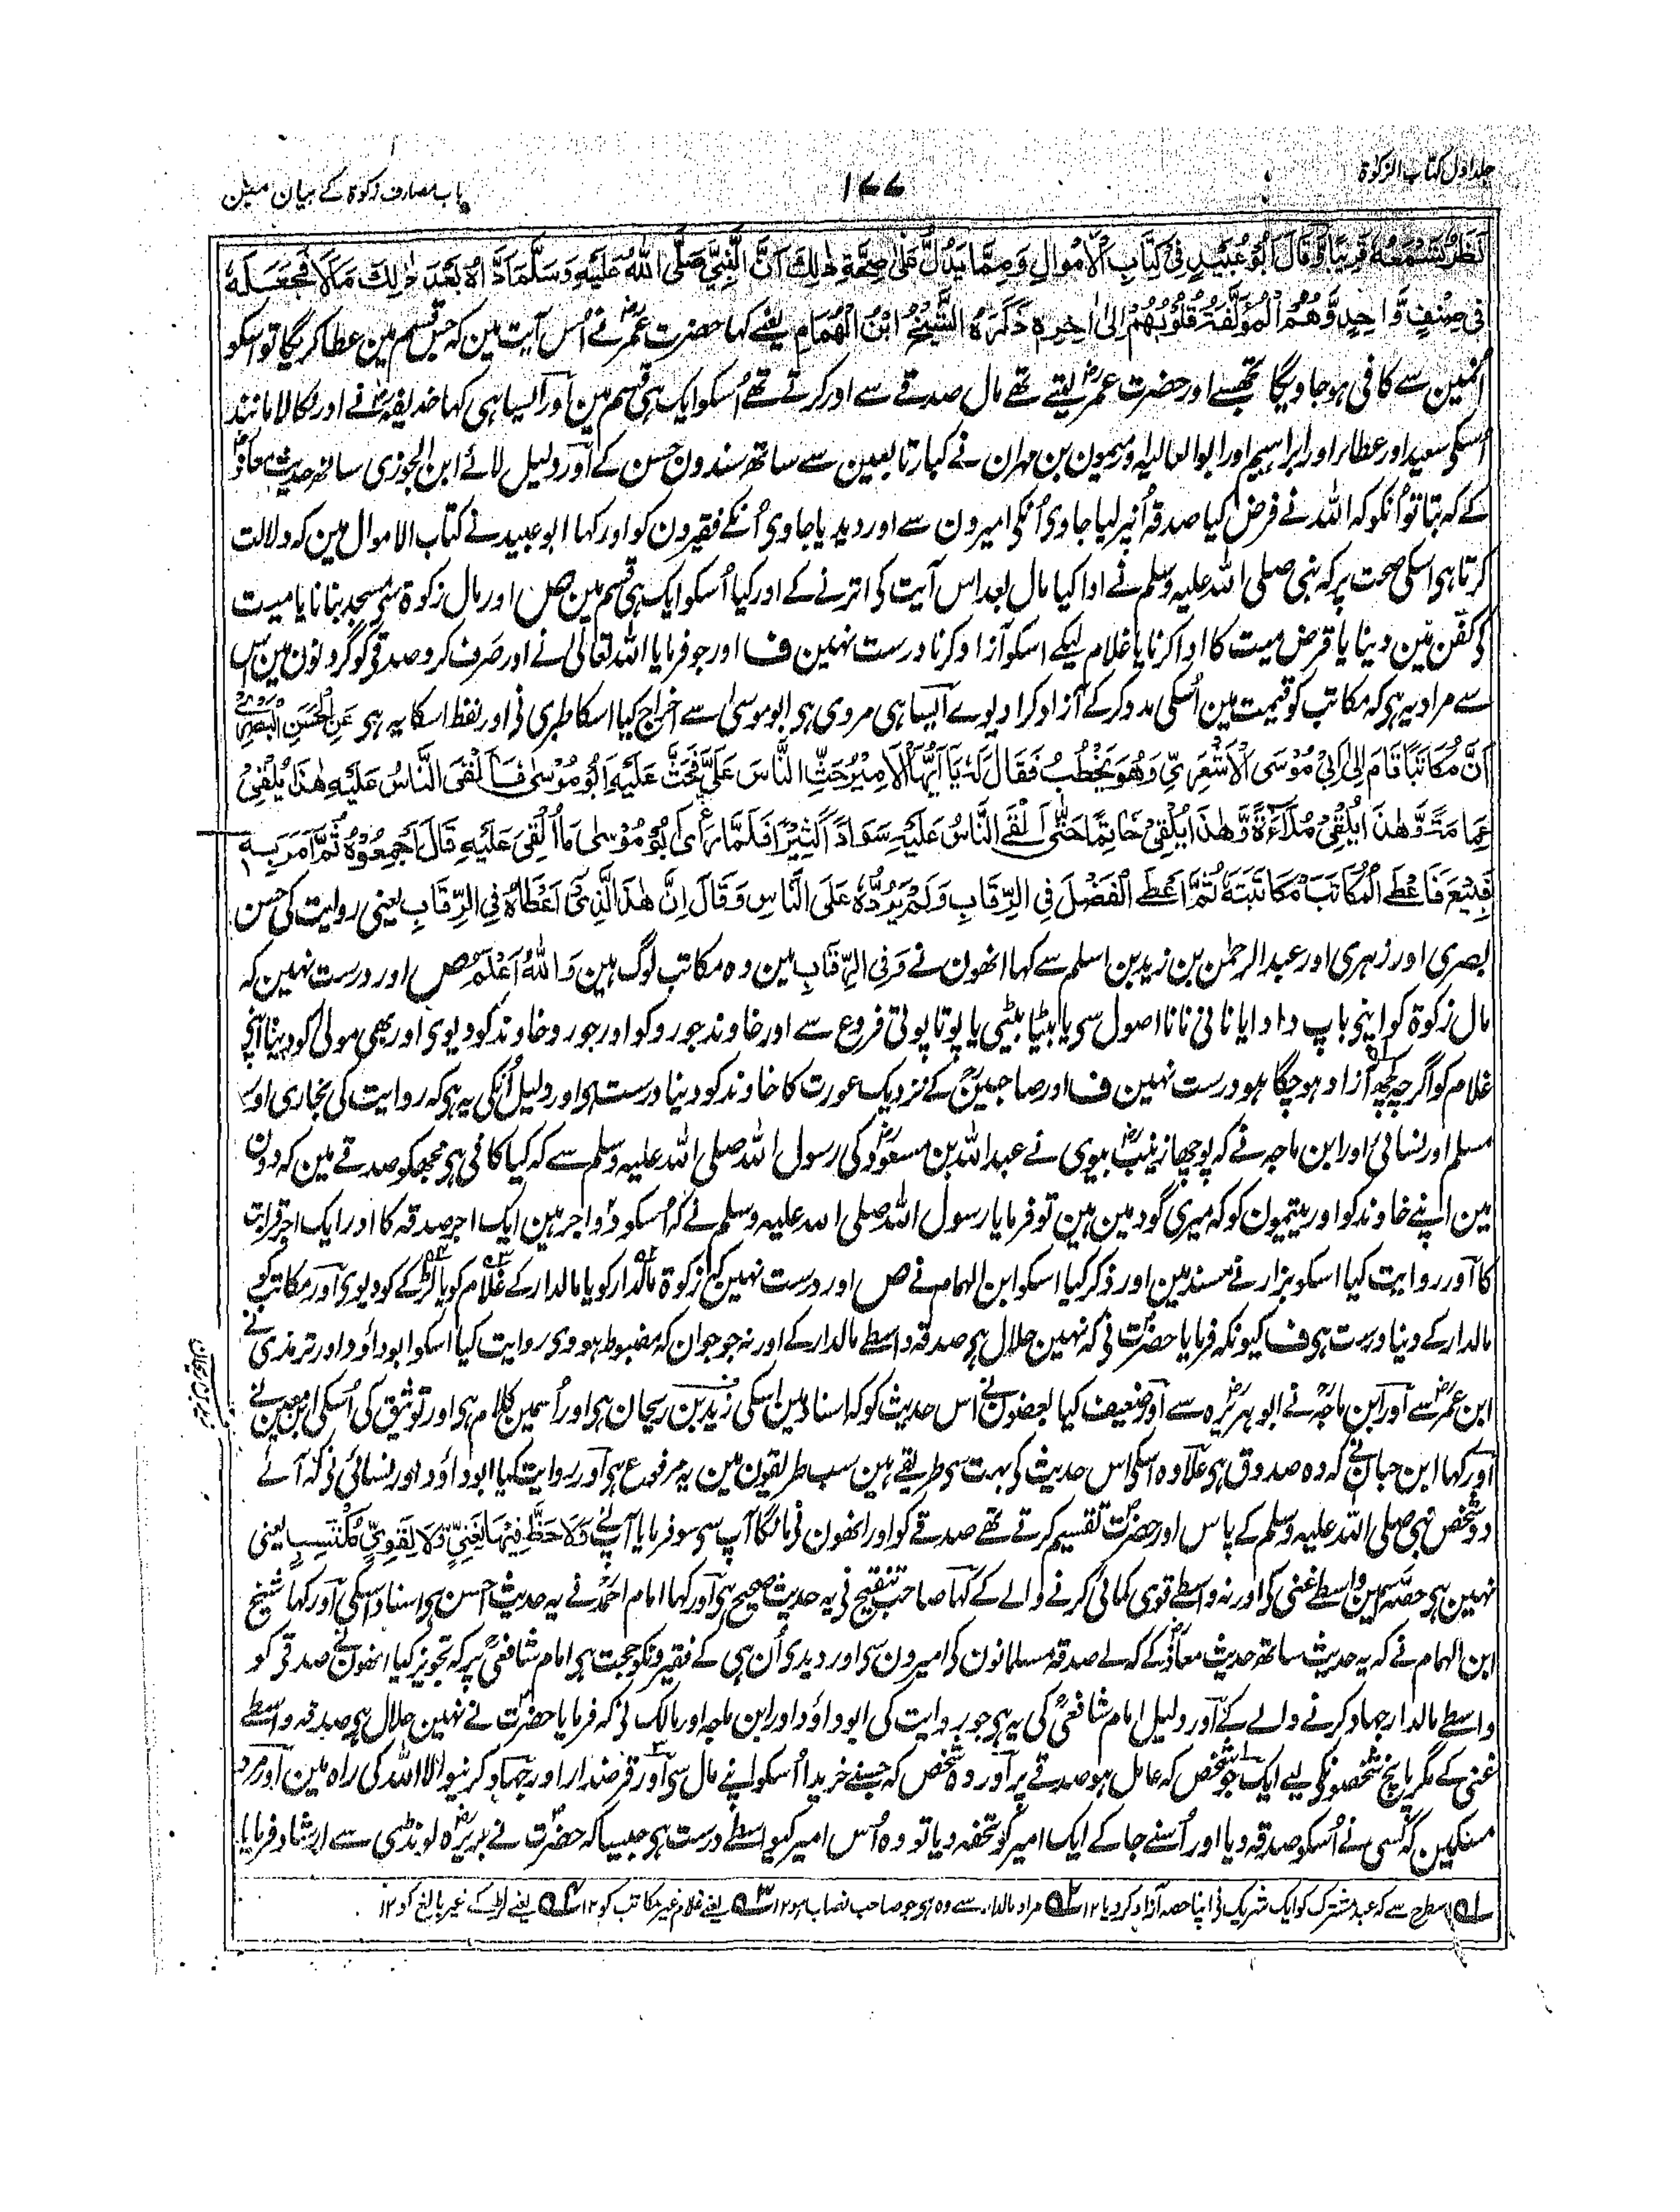 جلد اول کتاب الزکوٰۃ
۱۷۷
باب مصارف زکوۃ کے بیان مین
نَظَرٌ تَسْمَعُهُ قَرِيْبًا وَّقَالَ اَبُوْعُبَيْدٍ فِیْ كِتَابِ الْاَمْوَالِ وَمِمَّا يَدُلُّ عَلٰی صِحَّةِ ذٰلِكَ اَنَّ النَّبِيَّ صَلَّی اللّٰهُ عَلَيْهِ وَسَلَّمَ اَتَاهُ بَعْدَ ذٰلِكَ مَالٌ فَجَعَلَهُ
فِیْ صِنْفٍ وَّاحِدٍ وَّهُمُ الْمُؤَلَّفَةُ قُلُوْبُهُمْ اِلٰی اٰخِرِهٖ ذَكَرَهُ الشَّيْخُ ابْنُ الْهُمَامِ یعنے کہا حضرت عمرؓ نے اُس آیت مین کہ جس قسم مین عطا کریگا تو اسکو
اُنمین سے کافی ہوجاویگا تجھسے اور حضرت عمرؓ لیتے تھے مال صدقے سے اور کرتے تھے اُسکو ایک ہی قسم مین اور ایسا ہی کہا حذیفہؓ نے اور نکالا مانند
اُسکی سعید اور عطار اور ابراہیم اور ابوالعالیہ اور میمون بن مہران نے کبار تابعین سے ساتھ سندون حسن کے اور دلیل لائے ابن الجوزی ساتھ حدیث معاذؓ
کے کہ بتا تو اُنکو کہ اللہ نے فرض کیا صدقہ اُنپر لیا جاوی اُنکی امیرون سے اور دیدیا جاوی اُنکے فقیرون کو اور کہا ابو عبید نے کتاب الاموال مین کہ دلالت
کرتا ہی اسکی صحت پر کہ نبی صلی اللہ علیہ وسلم نے ادا کیا مال بعد اس آیت کی اترنے کے اور کیا اُسکو ایک ہی قسم مین ص اور مال زکوۃ سی مسجد بنانا یا میت
کو کفن مین دینا یا قرض میت کا ادا کرنا یا غلام لیکے اسکو آزاد کرنا درست نہین ف اور جو فرمایا اللہ تعالیٰ نے اور صرف کرو صدقی کو گردنون مین اس
سے مراد یہ ہی کہ مکاتب کو قیمت مین اُسکی مدد کرکے آزاد کرا دیوے ایسا ہی مروی ہی ابو موسیٰ سے اخراج کیا اسکا طبری نی اور لفظ اسکا یہ ہی عَنِ الْحَسَنِ الْبَصَرِيِّ
اَنَّ مُكَاتَبًا قَامَ اِلٰی اَبِیْ مُوْسَی الْاَشْعَرِيِّ وَهُوَ يَخْطُبُ فَقَالَ لَهٗ يَا اَيُّهَا الْاَمِيْرُ حَثِّ النَّاسَ عَلَيَّ فَحَثَّ عَلَيْهِ اَبُوْ مُوْسٰی فَاَلْقَی النَّاسُ عَلَيْهِ هٰذَا يُلْقِیْ
عِمَامَةً وَّهٰذَا يُلْقِیْ مُلَاءَةً وَّهٰذَا يُلْقِیْ خَاتِمًا حَتّٰی اَلْقَی النَّاسُ عَلَيْهِ سَوَادًا كَثِيْرًا فَلَمَّا رَاٰی اَبُوْ مُوْسٰی مَا اُلْقِیَ عَلَيْهِ قَالَ اجْمِعُوْهُ ثُمَّ اَمَرَ بِهٖ
فَبِيْعَ فَاَعْطَی الْمُكَاتَبَ مُكَاتَبَتَهٗ ثُمَّ اَعْطَی الْفَضْلَ فِی الرِّقَابِ وَلَمْ يَرُدَّهٗ عَلَی النَّاسِ وَقَالَ اِنَّ هٰذَا الَّذِیْ اَعْطَاهُ فِی الرِّقَابِ یعنی روایت کی حسن
بصری اور زہری اور عبدالرحمٰن بن زید بن اسلم سے کہا انھون نے وَفِی الرِّقَابِ مین وہ مکاتب لوگ ہین وَاللّٰهُ اَعْلَمُ ص اور درست نہین کہ
مال زکوۃ کو اپنی باپ دادا یا نانی نانا اصول سی یا بیٹا بیٹی یا پوتا پوتی فروع سے اور خاوند جورو کو اور جورو خاوند کو دیوی اور بھی مولی کو دینا اپنی
غلام کو اگرچہ کچھ آزاد ہو چکا ہو درست نہین ف اور صاحبینؒ کے نزدیک عورت کا خاوند کو دینا درست ہی اور دلیل اُنکی یہ ہی کہ روایت کی بخاری اور
مسلم اور نسائی اور ابن ماجہ نے کہ پوچھا زینبؓ بیوی نے عبداللہ بن مسعودؓ کی رسول اللہ صلی اللہ علیہ وسلم سے کہ کیا کافی ہی مجھکو صدقے مین کہ دون
مین اپنے خاوند کو اور یتیمون کو کہ میری گود مین ہین تو فرمایا رسول اللہ صلی اللہ علیہ وسلم نے کہ اُسکو دو اجر ہین ایک اجر صدقہ کا اور ایک اجر قرابت
کا اور روایت کیا اسکو بزار نے مسند مین اور ذکر کیا اسکو ابن الہمام نے ص اور درست نہین کہ زکوۃ مالدار کو یا مالدار کے غلام کو یا لڑکے کو دیوی اور مکاتب کو
مالدار کے دینا درست ہی ف کیونکہ فرمایا حضرتؐ نی کہ نہین حلال ہی صدقہ واسطے مالدار کے اور نہ جو جوان کہ مضبوط ہووی روایت کیا اسکو ابوداؤد اور ترمذی نے
ابن عمرؓ سے اور ابن ماجہؒ نے ابوہریرہؓ سے اور ضعیف کیا بعضون نے اس حدیث کو کہ اسناد مین اسکی زید بن ریحان ہی اور اُسمین کلام ہی اور توثیق کی اُسکی ابن معین نے
اور کہا ابن حبان نے کہ وہ صدوق ہی علاوہ اسکی اس حدیث کی بہت سی طریقے ہین سب طریقون مین یہ مرفوع ہی اور روایت کیا ابوداؤد اور نسائی نی کہ آئے
دو شخص نبی صلی اللہ علیہ وسلم کے پاس اور حضرتؐ تقسیم کرتے تھے صدقے کو اور انھون نی مانگا آپ سی سو فرمایا آپ نے وَلَا حَظَّ فِيْهَا لِغَنِيٍّ وَّلَا لِقَوِيٍّ مُّكْتَسِبٍ یعنی
نہین ہی حصہ اسمین واسطے غنی کی اور نہ واسطے قوی کمائی کرنے والے کے کہا صاحب تنقیح نی یہ حدیث صحیح ہی اور کہا امام احمدؒ نے یہ حدیث احسن ہی اسناد اسکی اور کہا شیخ
ابن الہمام نے کہ یہ حدیث ساتھ حدیث معاذؓ کے کہ لے صدقہ مسلمانون کی امیرون سی اور دیدی اُن ہی کے فقیرونکو حجت ہی امام شافعیؒ پر کہ تجویز کیا انھون نے صدقی کو
واسطے مالدار جہاد کرنے والے کے اور دلیل امام شافعیؒ کی یہ ہی جو روایت کی ابوداؤد اور ابن ماجہ اور مالک نی کہ فرمایا حضرتؐ نے نہین حلال ہی صدقہ واسطے
غنی کے مگر پانچ شخصونکی لیے ایک جو شخص کہ عامل ہو صدقے پر اور وہ شخص کہ جسنے خریدا اُسکو اپنے مال سی اور قرضدار اور جہاد کرنیوالا اللہ کی راہ مین اور مرد
مسکین کہ کسی نے اُسکو صدقہ دیا اور اُسنے جاکے ایک امیر کو تحفہ دیا تو وہ اُس امیر کیواسطے درست ہی جیسا کہ حضرتؐ نے بریرہؓ لونڈی سے ارشاد فرمایا
لہ اسطرح سے کہ عبد مشترک کو ایک شریک نی اپنا حصہ آزاد کردیا ۱۲ ۲ مراد مالدار سے وہ ہی جو صاحب نصاب ہو ۱۲ ۳ یعنے غلام غیر مکاتب کو ۱۲ ۴ یعنے لڑکے غیر بالغ کو ۱۲